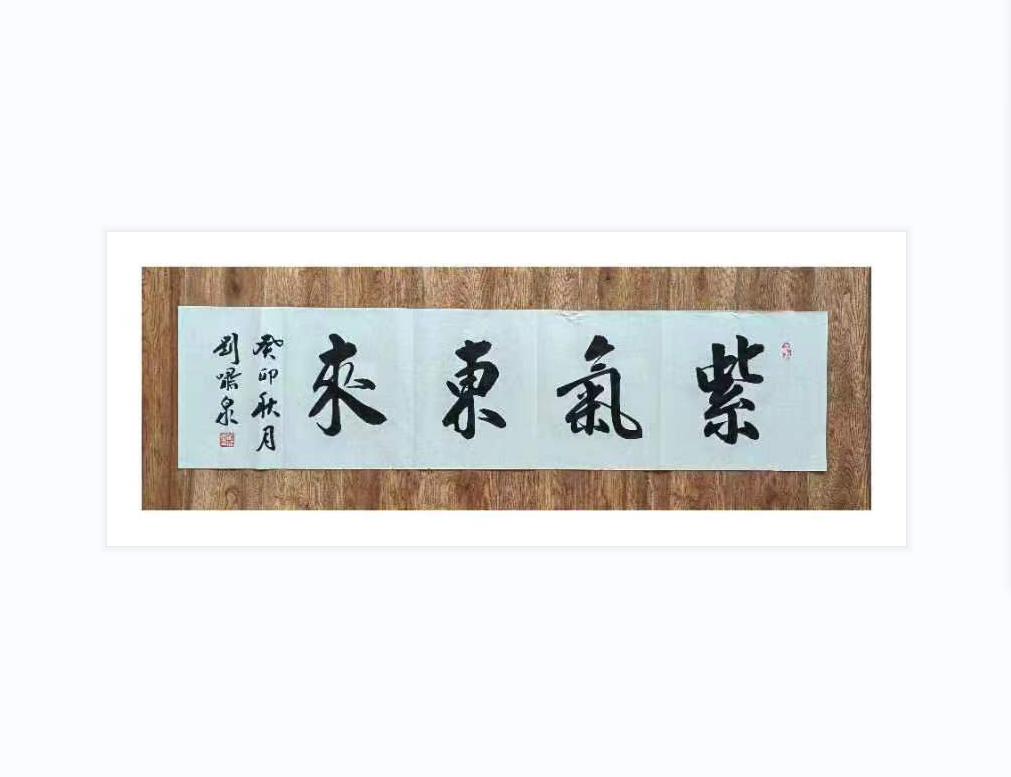 紫氣東來
癸卯秋月
劉嘯泉